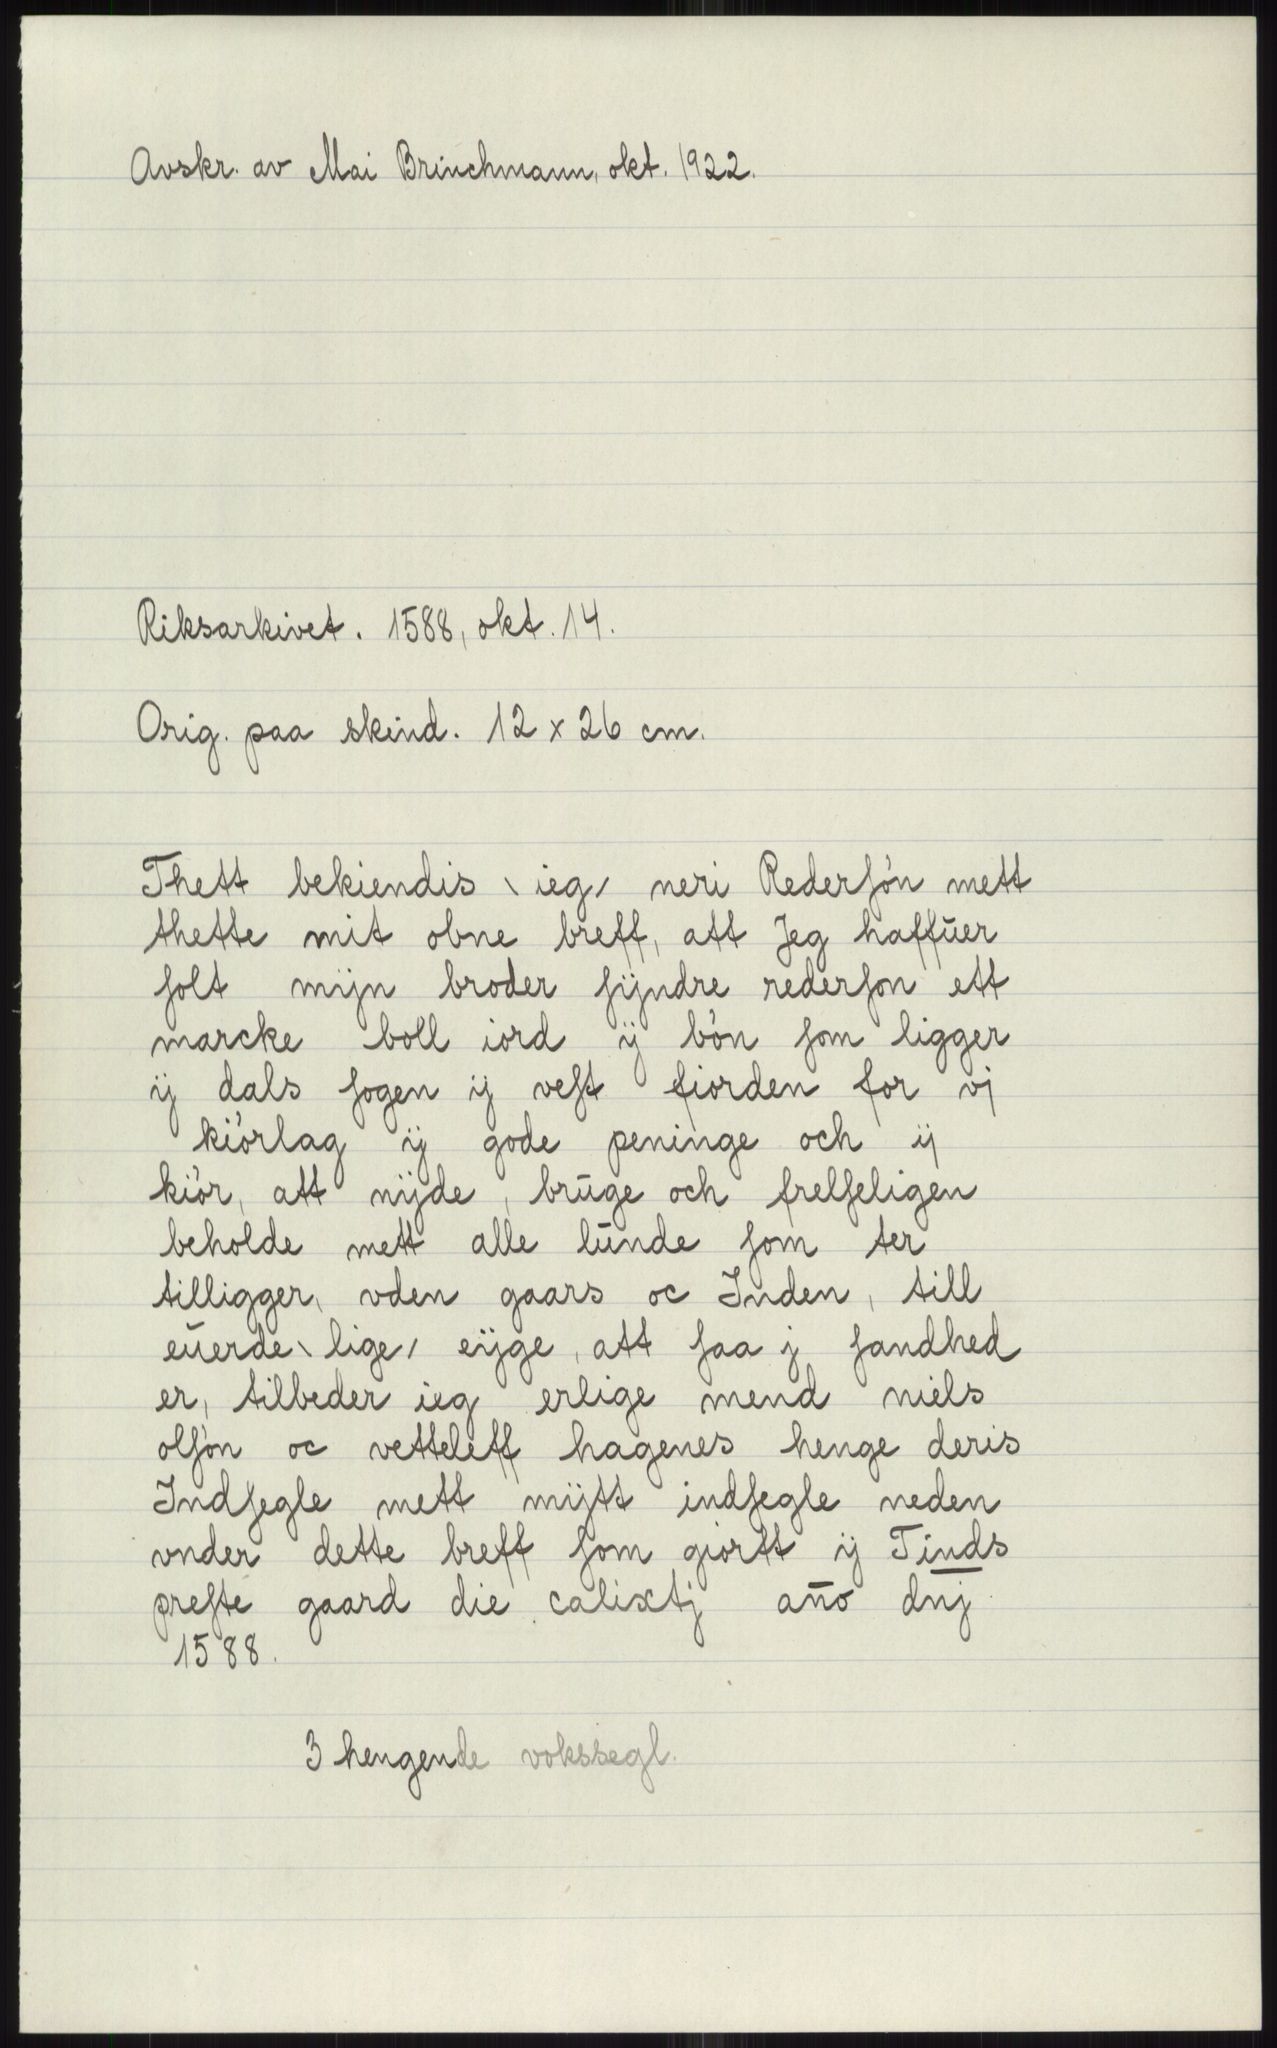 Avskr. av Mai Brinchmann, okt. 1922.
Riksarkivet. 1588, okt. 14.
Orig. paa skind. 12 x 26 cm.
Thett bekiendis \ ieg / neri Rederſón mett
thette mit obne breff, att Jeg haffūer
ſolt mijn broder ſijndre rederſon ett
marcke boll iord ÿ bón ſom ligger
ij dals ſogen ij veſt fiorden for vj
kiórlag ij gode peninge och ij
kiór, att nijde, brūge och frelſeligen
beholde mett alle lūnde ſom ter
tilligger, vden gaars oc Inden, till
eūerde \ lige / eÿge, att ſaa j ſandhed
er, tilbeder ieg erlige mend niels
olſón oc vetteleff hagenes henge deris
Indſegle mett mijtt indſegle neden
vnder dette breff ſom giortt ij Tinds
preſte gaard die calixtj an̄o dn̄j
1588.
3 hengende vokssegl.